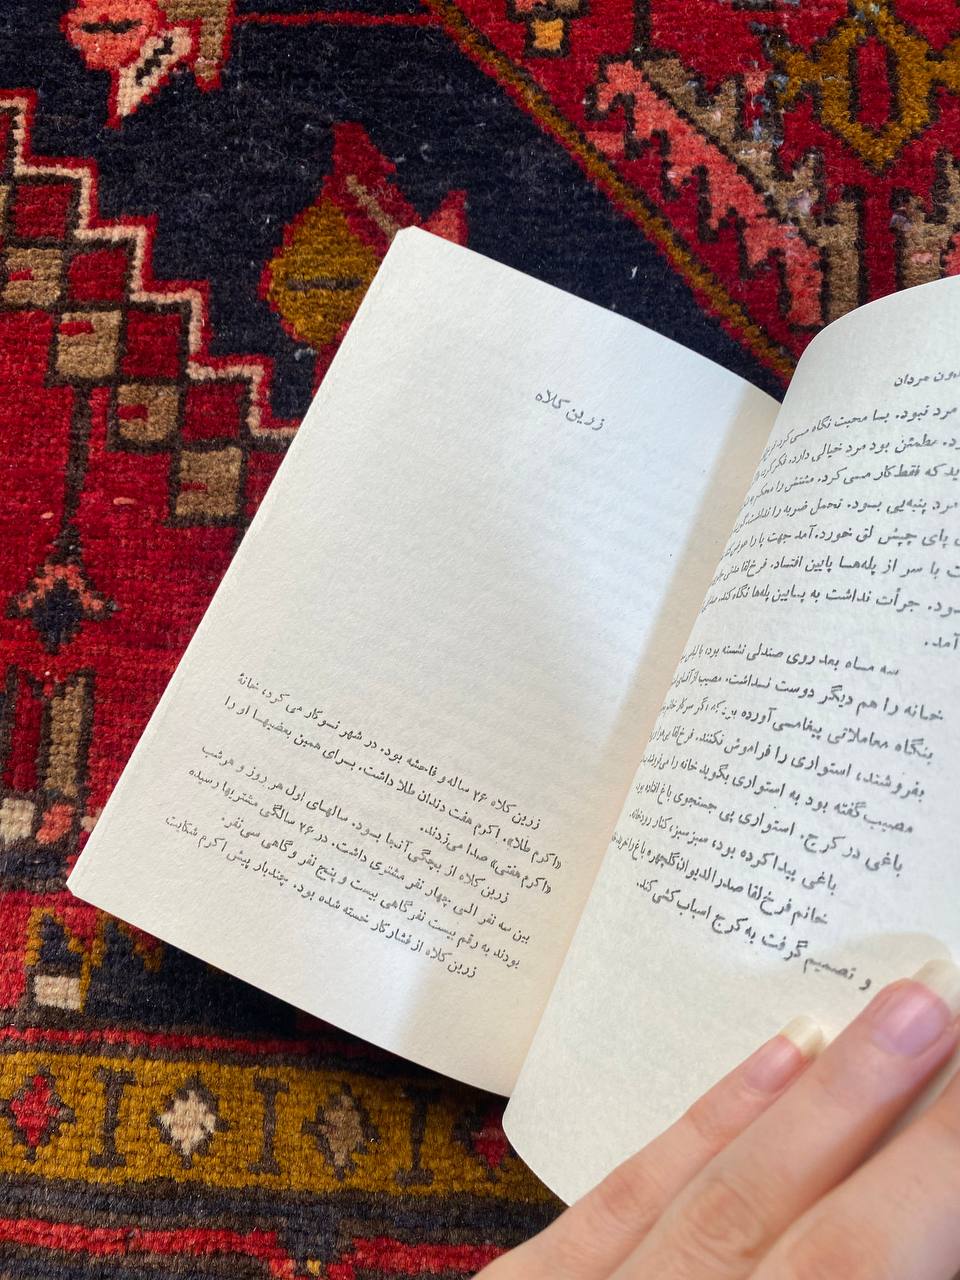 مردان
مرد نبود. بسا محبت نگاه مسی‌کرد.
مطمئن بود مرد خیالی دارد. فکر کرد
که فقط کار مسی کرد. مشتش را محکم
مرد پنبه‌یی بسود. تحمل ضربه را نداشت.
پای چپش لق خورد. آمد جهت پا را
با سر از پله‌هسا پایین افتساد. فرخ‌لقا
جرأت نداشت به پسایین پله‌ها نگاه کند.
آمد.
سه مساه بعد روی صندلی نشسته بود، با لباس
خسانه را هم دیگر دوست نسداشت. مصیب از آقسای
بنگاه معاملاتی پیغامسی آورده بود که اگر سرکار خانم
بفروشند، استواری را فراموش نکنند. فرخ‌لقا
مصیب گفته بود به استواری بگوید خانه را می‌فروشد
باغی در کرج. استواری پی جستجوی باغ افتاده بود.
باغی پیدا کرده بود، سبز سبز، کنار رودخانه.
خانم فرخ‌لقا صدرالدیوان گلچهره باغ را خرید
و تصمیم گرفت به کرج اسباب‌کشی کند.
زرین کلاه
زرین کلاه ۲۶ ساله و فاحشه بود. در شهر نسو کار می‌کرد، خانهٔ
«اکرم طلا». اکرم هفت دندان طلا داشت. بسرای همین بعضیهسا او را
«اکرم هفتی» صدا می‌زدند.
زرین کلاه از بچگی آنجا بسود. سالهای اول هر روز و هرشب
بین سه نفر الی چهار نفر مشتری داشت. در ۲۶ سالگی مشتریها رسیده
بودند به رقم بیست نفر گاهی بیست و پنج نفر و گاهی سی‌نفر.
زرین کلاه از فشار کار خسته شده بود. چندبار پیش اکرم شکایت